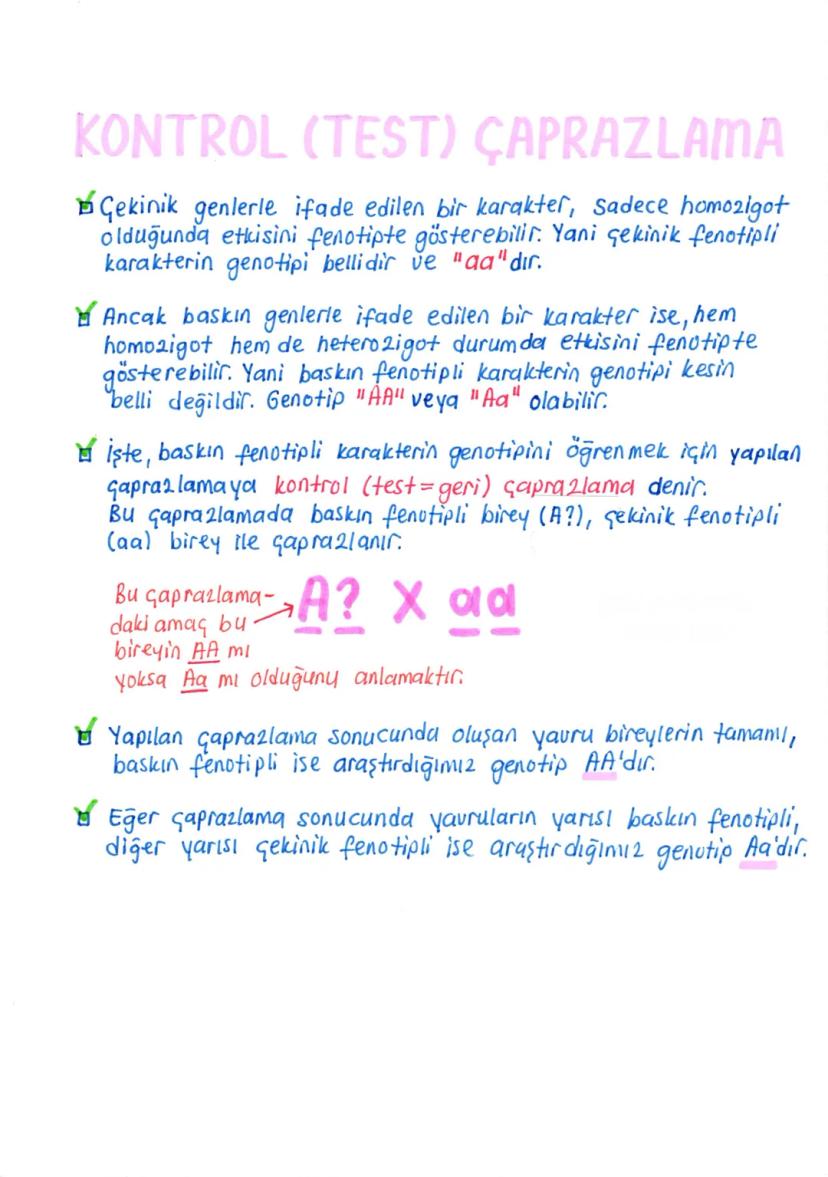 KONTROL (TEST) ÇAPRAZLAMA
Çekinik genlerle ifade edilen bir karakter, sadece homozigot
olduğunda etkisini fenotipte gösterebilir. Yani çekinik fenotipli
karakterin genotipi bellidir ve "aa" dır.
Ancak baskın genlerle ifade edilen bir karakter ise, hem
homozigot hem de heterozigot durumda etkisini fenotipte
gösterebilir. Yani baskın fenotipli karakterin genotipi kesin
belli değildir. Genotip "AA" veya "Aa" olabilir.
İşte, baskın fenotipli karakterin genotipini öğrenmek için yapılan
çaprazlamaya kontrol (test=geri) çaprazlama denir.
Bu çaprazlamada baskın fenotipli birey (A?), çekinik fenotipli
(aa) birey ile çaprazlanır.
Bu çaprazlama-
daki amaç bu
bireyin AA mı
yoksa Aa mı olduğunu anlamaktır.
A? X aa
Yapılan çaprazlama sonucunda oluşan yavru bireylerin tamamı,
baskın fenotipli ise araştırdığımız genotip AA'dır.
Eğer çaprazlama sonucunda yavruların yarısı baskın fenotipli,
diğer yarısı çekinik fenotipli ise araştırdığımız genotip Aa'dır.